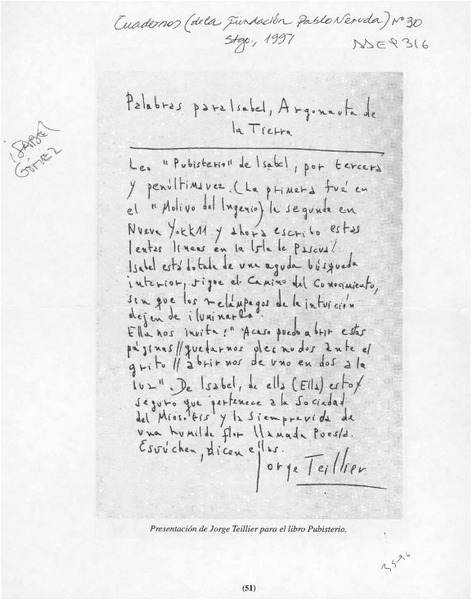 Cuadernos (de la Fundación Pablo Neruda) Nº 30
Stgo., 1997
ISABEL
GÓMEZ
Palabras para Isabel, Argonauta de
la Tierra
Leo "Pubisterio" de Isabel, por tercera
y penúltima vez. (La primera fué en
el "Molivo del Ingenio) la segunda en
Nueva York 11 y ahora escribo estas
lentas líneas en la Isla de Pascua!
Isabel está dotada de una aguda búsqueda
interior, sigue el Camino del Conocimiento,
sin que los relámpagos de la intuición
dejen de iluminarla.
Ella nos invita: "Acaso puedo abrir estas
páginas // quedarnos desnudos ante el
grito // abrirnos de uno en dos a la
luz". De Isabel, de ella (Ella) estoy
seguro que pertenece a la Sociedad
del Miosotis y la siempreviva de
una humilde flor llamada Poesía.
Escúchen, dicen ellas.
Jorge Teillier
Presentación de Jorge Teillier para el libro Pubisterio.
(51)